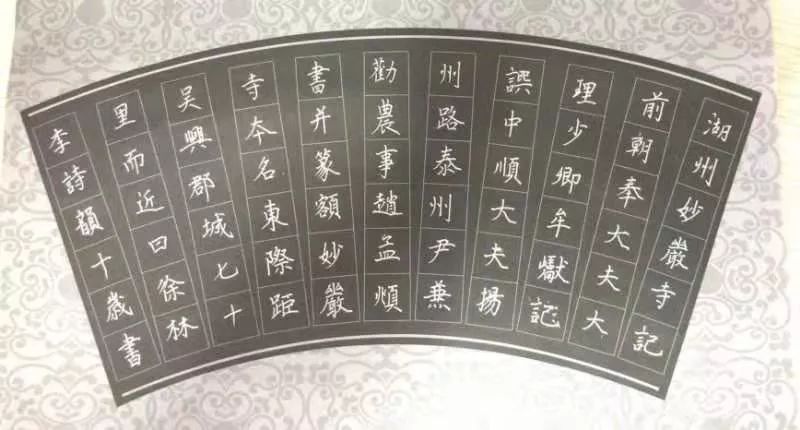 湖州妙嚴寺記
前朝奉大夫大
理少卿牟巘記
譔中順大夫揚
州路泰州尹兼
勸農事趙孟頫
書并篆額妙嚴
寺本名東際距
吳興郡城七十
里而近曰徐林
李詩韻十歲書